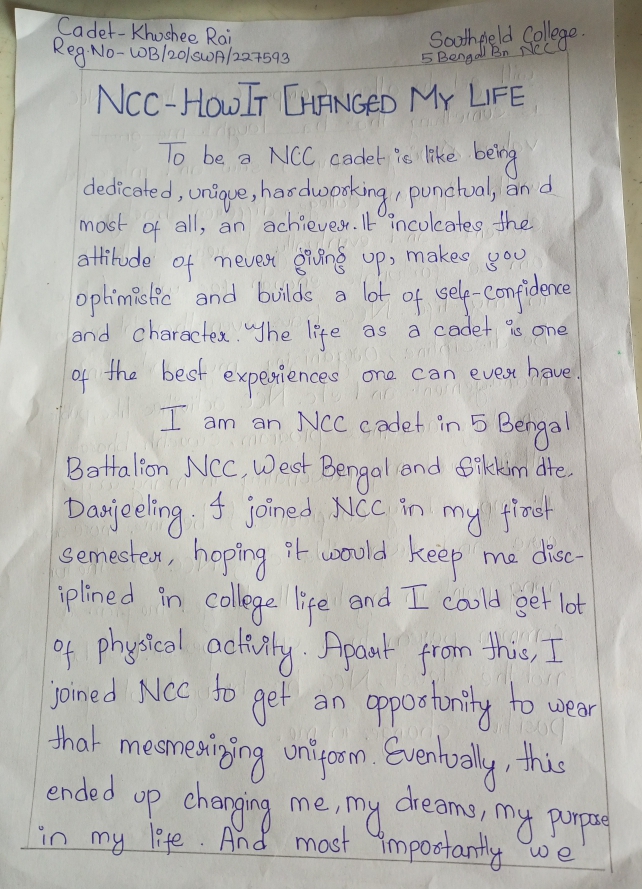 Cadet- Khushee Rai
Reg.No- WB/20/SWA/227593
Southfield College.
5 Bengal Bn NCC
NCC-HOW IT CHANGED MY LIFE
To be a NCC cadet is like being
dedicated, unique, hardworking, punctual, and
most of all, an achiever. It inculcates the
attitude of never giving up, makes you
optimistic and builds a lot of self-confidence
and character. "The life as a cadet is one
of the best experiences one can ever have.
I am an NCC cadet in 5 Bengal
Battalion NCC, West Bengal and Sikkim dte.
Darjeeling. I joined NCC in my first
semester, hoping it would keep me disc-
iplined in college life and I could get lot
of physical activity. Apart from this, I
joined NCC to get an opportunity to wear
that mesmerizing uniform. Eventually, this
ended up changing me, my dreams, my purpose
in my life. And most importantly we